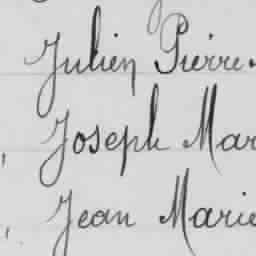 Julien Pierre
Joseph Mar
Jean Marie